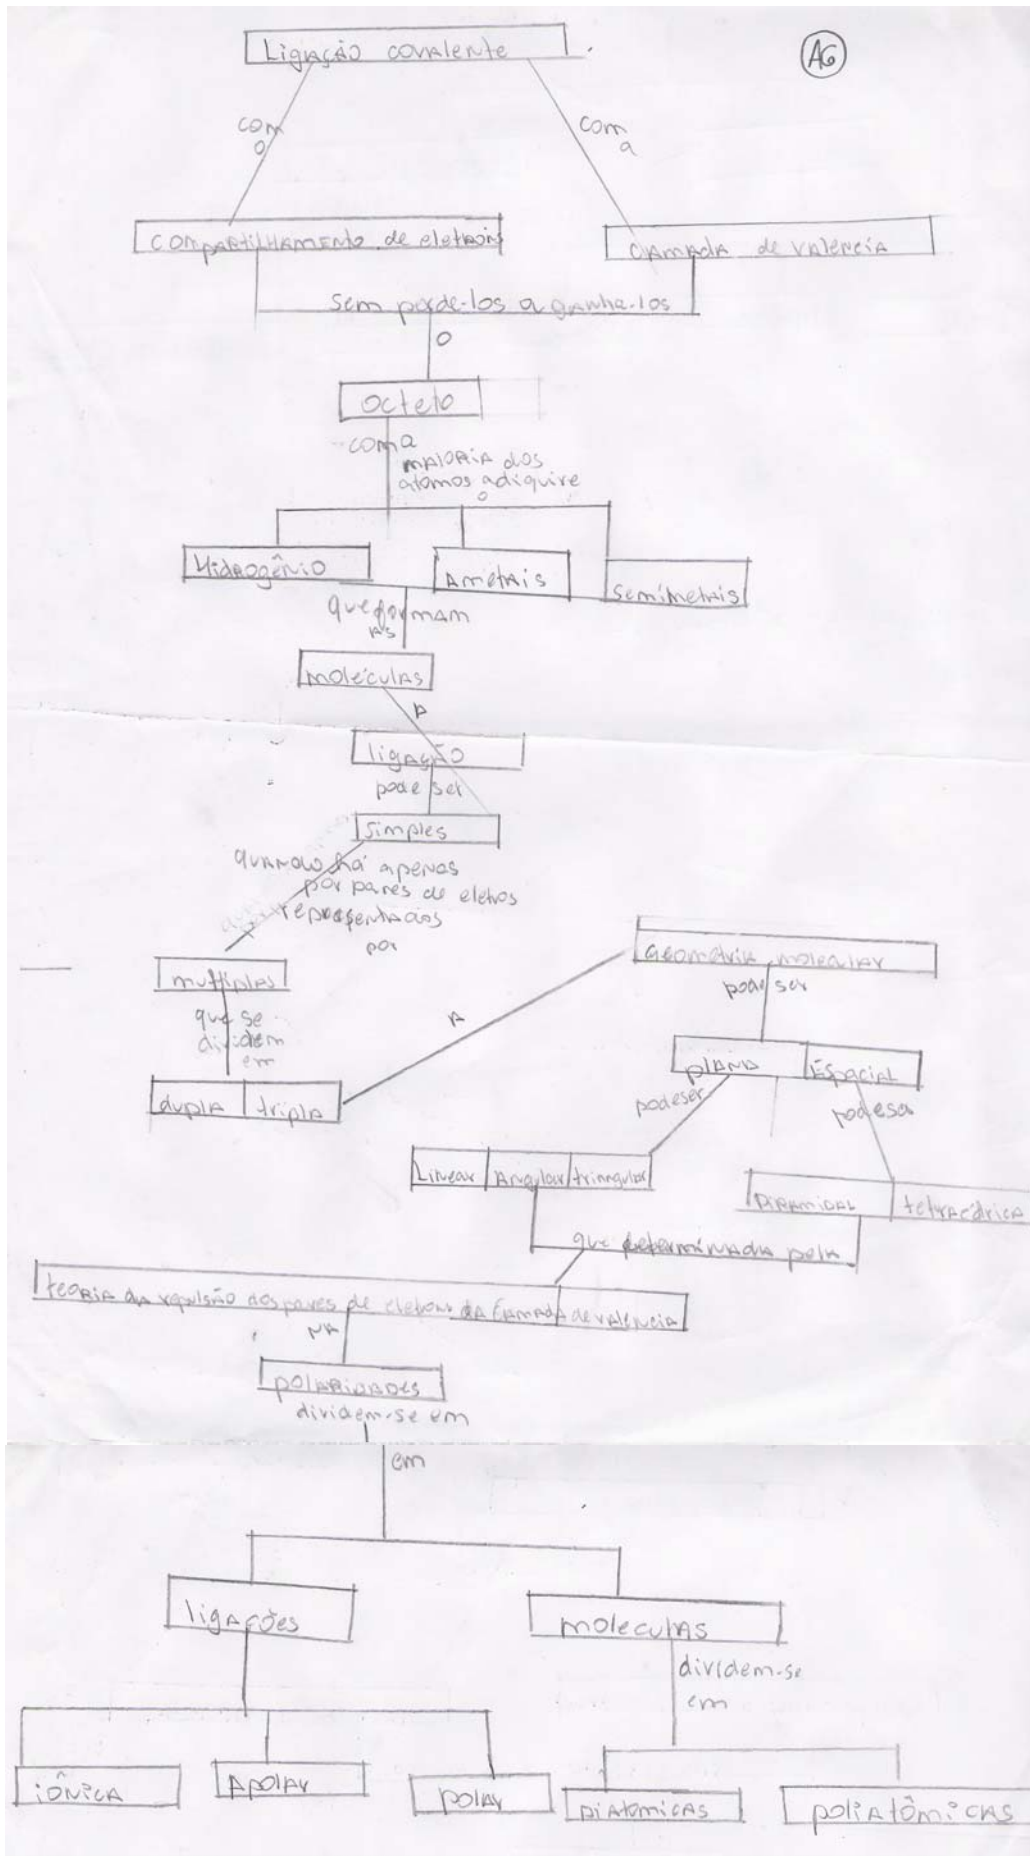 Ligação covalente
A6
com
o
com
a
compartilhamento de eletrons
camada de valência
sem perde-los a ganha-los
o
octeto
com a
maioria dos
atomos adiquire
o
Hidrogênio
Ametais
Semimetais
que formam
as
moléculas
A
ligação
pode ser
simples
quando há apenas
por pares de eletros
representados
por
multiplas
que se
dividem
em
dupla
tripla
A
Geometria molecular
pode ser
plana
Espacial
pode ser
podeser
Linear
Angular
triangular
piramidal
tetraédrica
que determinada pela
teoria da repulsão dos pares de eletrons da camada de valencia
NA
polaridades
dividem-se em
em
ligações
moleculas
dividem-se
em
iônica
Apolar
polar
Diatomicas
poliatômicas